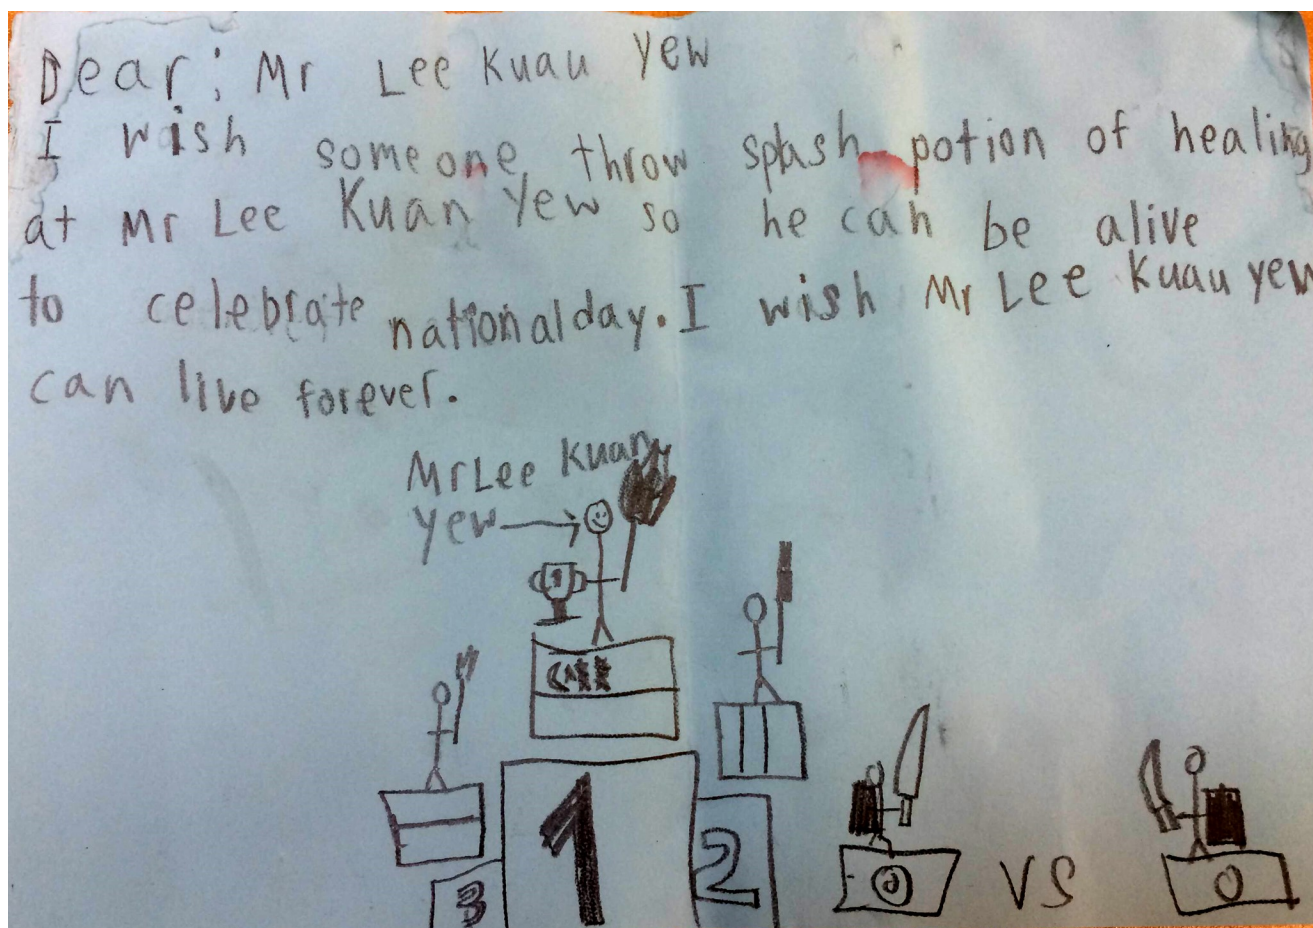 Dear; Mr Lee Kuau Yew
I wish someone throw splash potion of healing
at Mr Lee Kuan Yew so he can be alive
to celebrate nationalday. I wish Mr Lee Kuau yew
can live forever.
Mr Lee Kuan
yew
1
1
2
3
VS